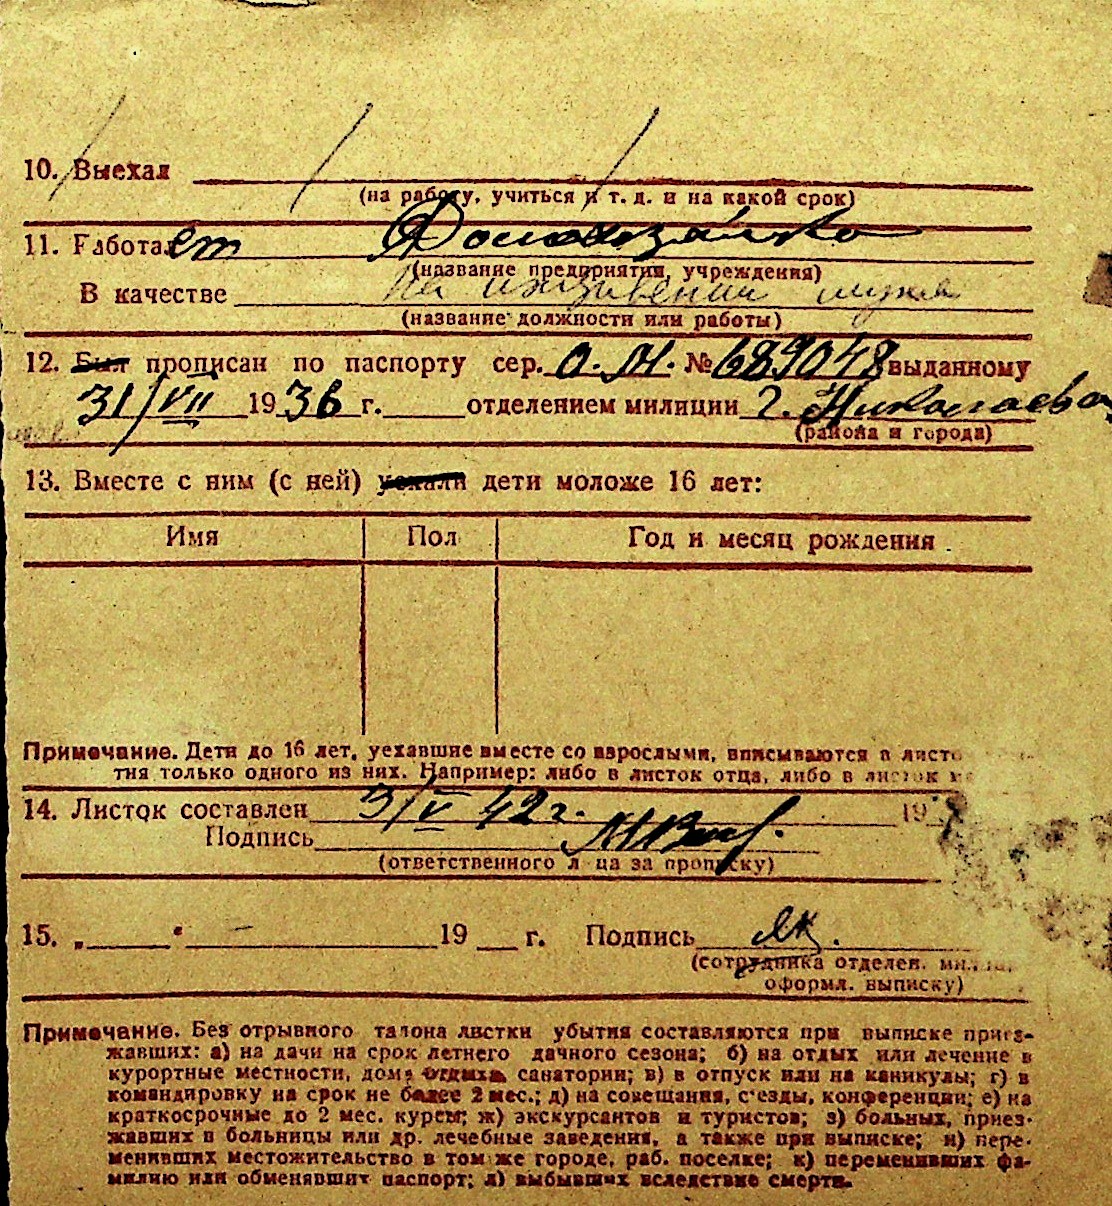 10. Выехал
(на работу, учиться и т. д. и на какой срок)
11. Работает Домохозяйка
(название предприятия, учреждения)
В качестве на иждивении мужа
(название должности или работы)
12. Был прописан по паспорту сер. О.М. № 689048 выданному
31/VII 1936 г. отделением милиции г. Николаева
(района и города)
13. Вместе с ним (с ней) уехали дети моложе 16 лет:
Имя Пол Год и месяц рождения
Примечание. Дети до 16 лет, уехавшие вместе со взрослыми, вписываются в листо
тия только одного из них. Например: либо в листок отца, либо в листок
14. Листок составлен 3/V 42 г. 19
Подпись
(ответственного л ца за прописку)
15. „ “ 19 г. Подпись
(сотрудника отделен. мил
оформл. выписку)
Примечание. Без отрывного талона листки убытия составляются при выписке приез-
жавших: а) на дачи на срок летнего дачного сезона; б) на отдых или лечение в
курортные местности, дома отдыха, санатории; в) в отпуск или на каникулы; г) в
командировку на срок не более 2 мес.; д) на совещания, с'езды, конференции; е) на
краткосрочные до 2 мес. курсы; ж) экскурсантов и туристов; з) больных, приез-
жавших в больницы или др. лечебные заведения, а также при выписке; и) пере-
менивших местожительство в том же городе, раб. поселке; к) переменивших фа-
милию или обменявших паспорт; л) выбывших вследствие смерти.